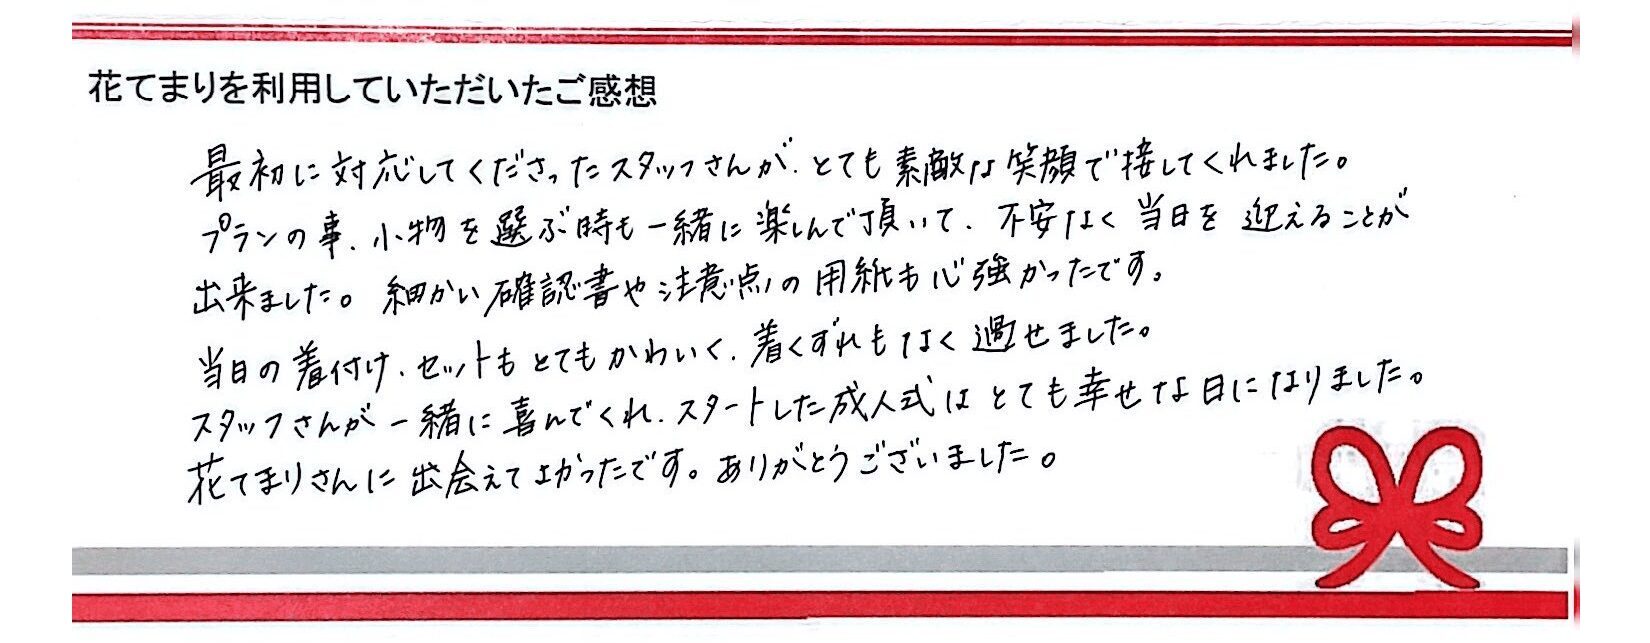 花てまりを利用していただいたご感想
最初に対応してくださったスタッフさんが、とても素敵な笑顔で接してくれました。
プランの事、小物を選ぶ時も一緒に楽しんで頂いて、不安なく当日を迎えることが
出来ました。細かい確認書や注意点の用紙も心強かったです。
当日の着付け、セットもとてもかわいく、着くずれもなく過せました。
スタッフさんが一緒に喜んでくれ、スタートした成人式はとても幸せな日になりました。
花てまりさんに出会えてよかったです。ありがとうございました。